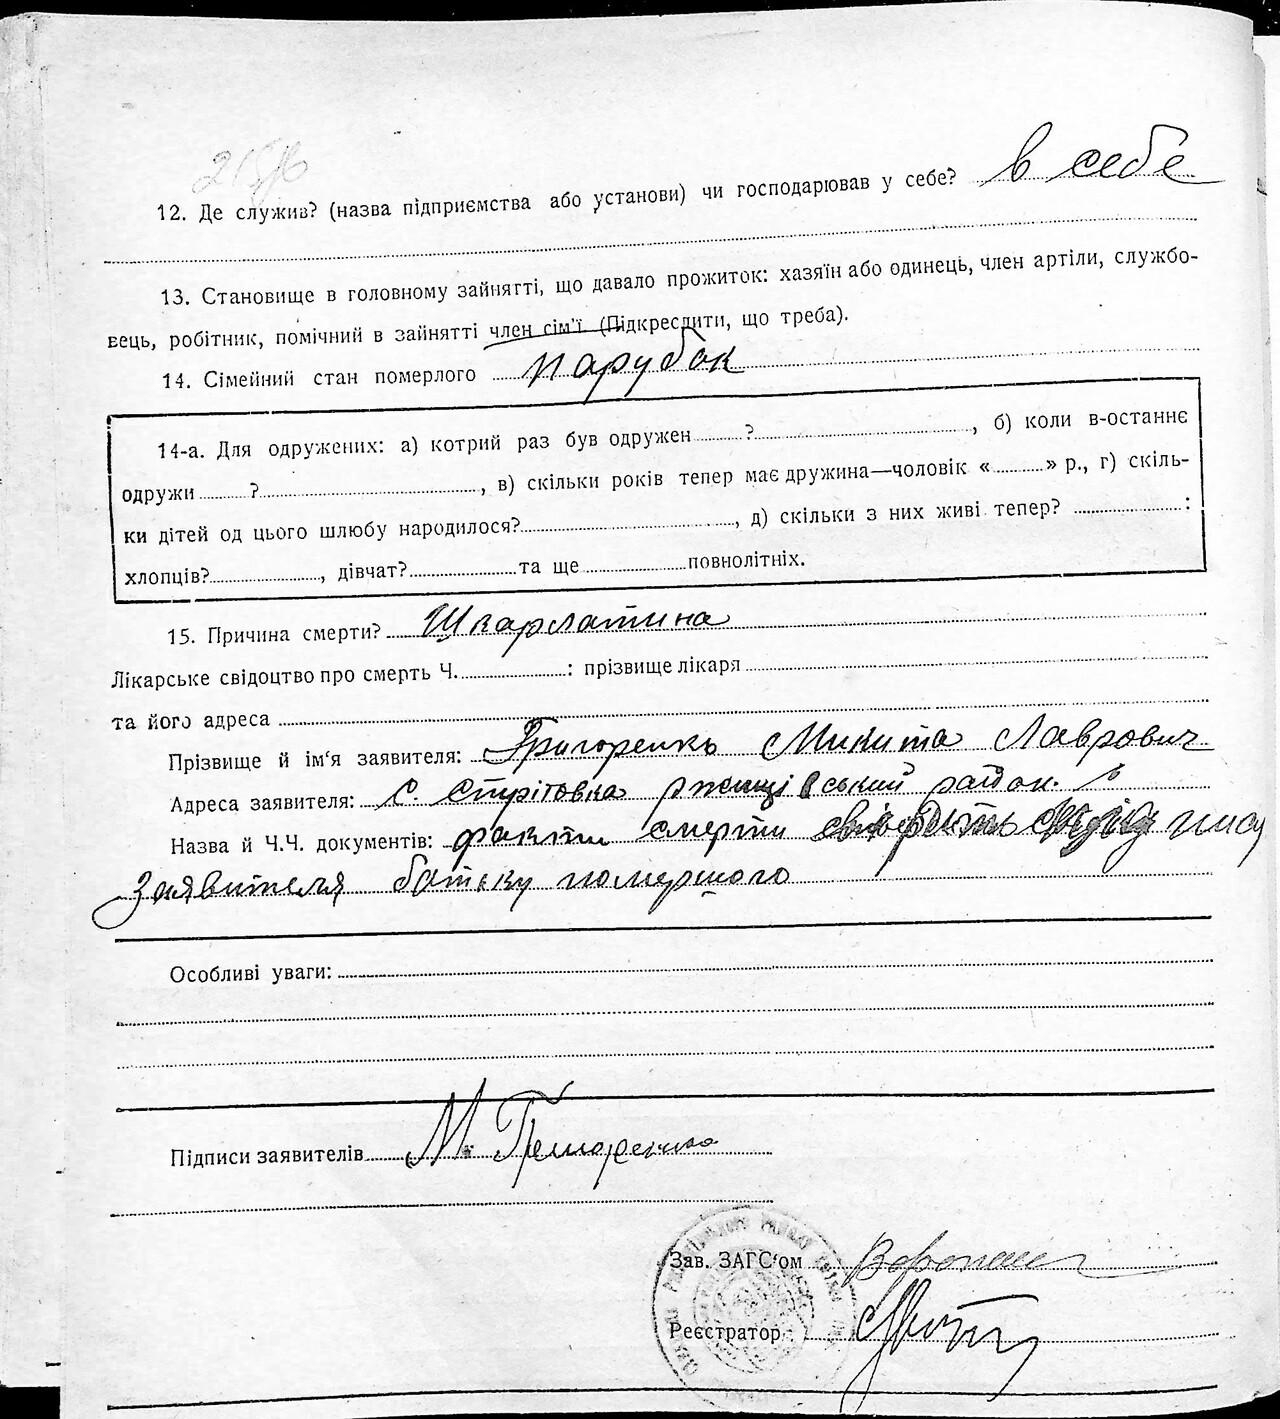 12. Де служив? (назва підприємства або установи) чи господарював у себе? в себе
13. Становище в головному зайнятті, що давало прожиток: хазяїн або одинець, член артіли, службо-
вець, робітник, помічний в зайнятті член сім'ї (Підкреслити, що треба).
14. Сімейний стан померлого парубок
14-а. Для одружених: а) котрий раз був одружен ?, б) коли в-останнє
одружи ?, в) скільки років тепер має дружина—чоловік « » р., г) скіль-
ки дітей од цього шлюбу народилося?, д) скільки з них живі тепер? :
хлопців?, дівчат? та ще повнолітніх.
15. Причина смерти? Шкарлатина
Лікарське свідоцтво про смерть Ч. : прізвище лікаря
та його адреса
Прізвище й ім'я заявителя: Григоренко Микита Лаврович
Адреса заявителя: с. Стрітовка ржищівський район.
Назва й Ч.Ч. документів: факти смерти
заявителя батьку помершого
Особливі уваги:
Підписи заявителів М. Григоренко
Зав. ЗАГС'ом
Реєстратор